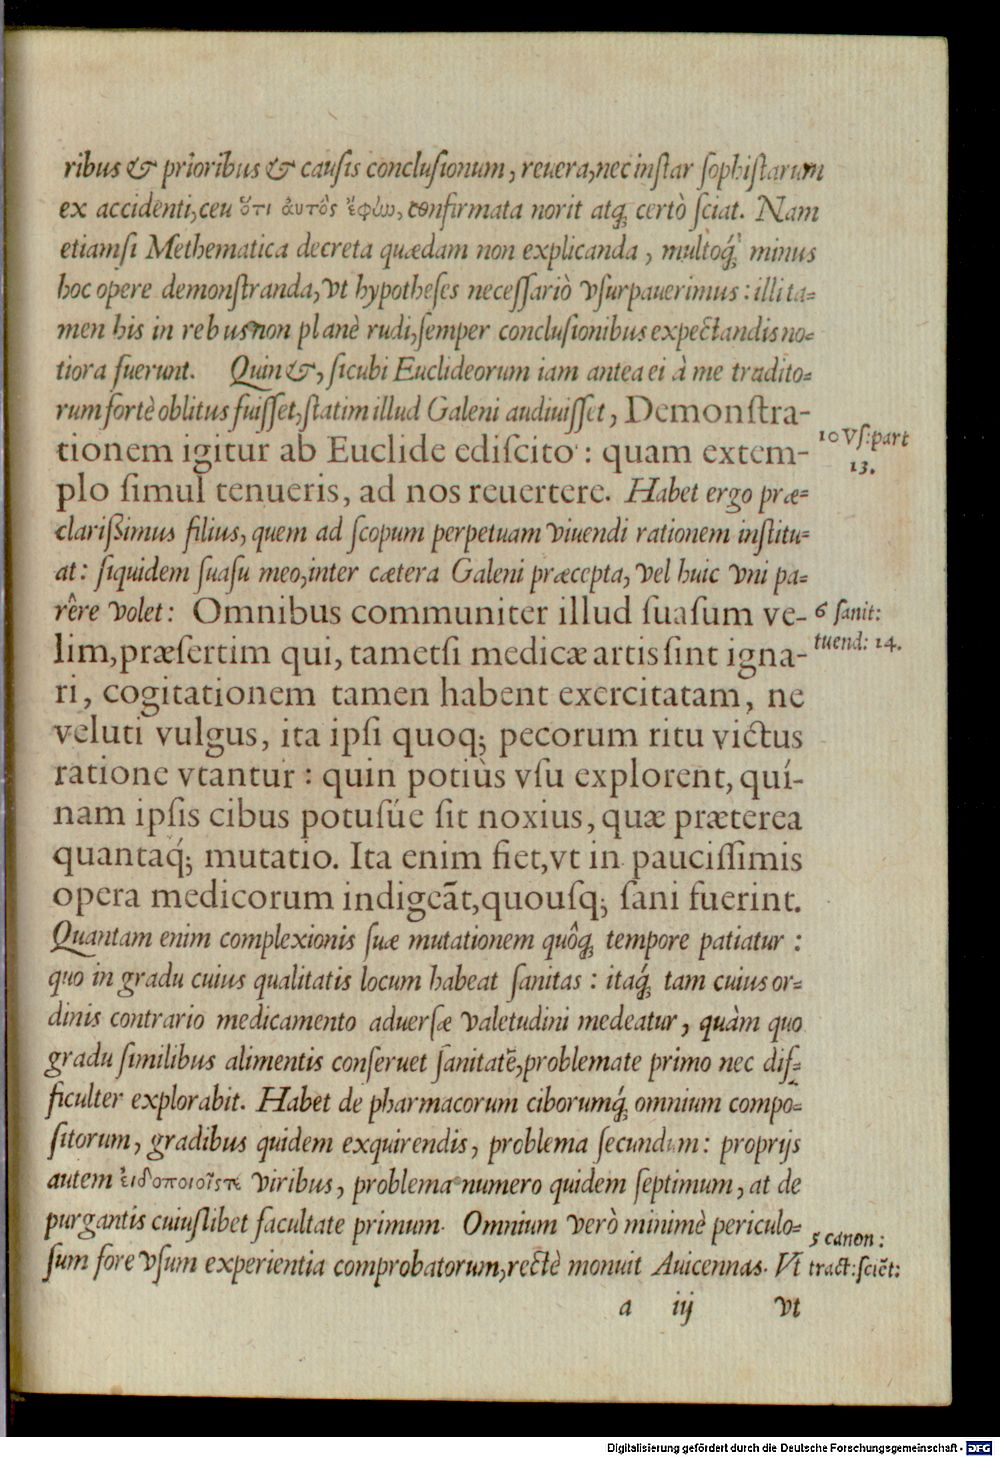 ribus & prioribus & causis conclusionum, reuera, nec instar sophistarum
ex accidenti, ceu ὅτι ἀυτὸς ἐφάω, confirmata norit atq; certò sciat. Nam
etiamsi Methematica decreta quædam non explicanda, multoq́; minus
hoc opere demonstranda, vt hypotheses necessariò vsurpauerimus: illi ta-
men his in rebus non planè rudi, semper conclusionibus expectandis no-
tiora fuerunt. Quin &, sicubi Euclideorum iam antea ei à me tradito-
rum fortè oblitus fuisset, statim illud Galeni audiuisset, Demonstra-
tionem igitur ab Euclide ediscito: quam extem-
10 Vs: part
13.
plo simul tenueris, ad nos reuertere. Habet ergo præ-
clarißimus filius, quem ad scopum perpetuam viuendi rationem institu-
at: siquidem suasu meo, inter cætera Galeni præcepta, vel huic vni pa-
rêre volet: Omnibus communiter illud suasum ve-
6 sanit:
tuend: 14.
lim, præsertim qui, tametsi medicæ artis sint igna-
ri, cogitationem tamen habent exercitatam, ne
veluti vulgus, ita ipsi quoq; pecorum ritu victus
ratione vtantur: quin potiùs vsu explorent, quí-
nam ipsis cibus potusúe sit noxius, quæ præterea
quantaq́; mutatio. Ita enim fiet, vt in paucissimis
opera medicorum indigeãt, quousq; sani fuerint.
Quantam enim complexionis suæ mutationem quôq; tempore patiatur:
quo in gradu cuius qualitatis locum habeat sanitas: itaq́; tam cuius or-
dinis contrario medicamento aduersæ valetudini medeatur, quàm quo
gradu similibus alimentis conseruet sanitatẽ, problemate primo nec dif-
ficulter explorabit. Habet de pharmacorum ciborumq́; omnium compo-
sitorum, gradibus quidem exquirendis, problema secundum: proprijs
autem viribus, problema numero quidem septimum, at de
purgantis cuiuslibet facultate primum. Omnium verò minimè periculo-
sum fore vsum experientia comprobatorum, rectè monuit Auicennas. Vt
5 canon:
tract: sciẽt:
a iij vt
Digitalisierung gefördert durch die Deutsche Forschungsgemeinschaft - DFG